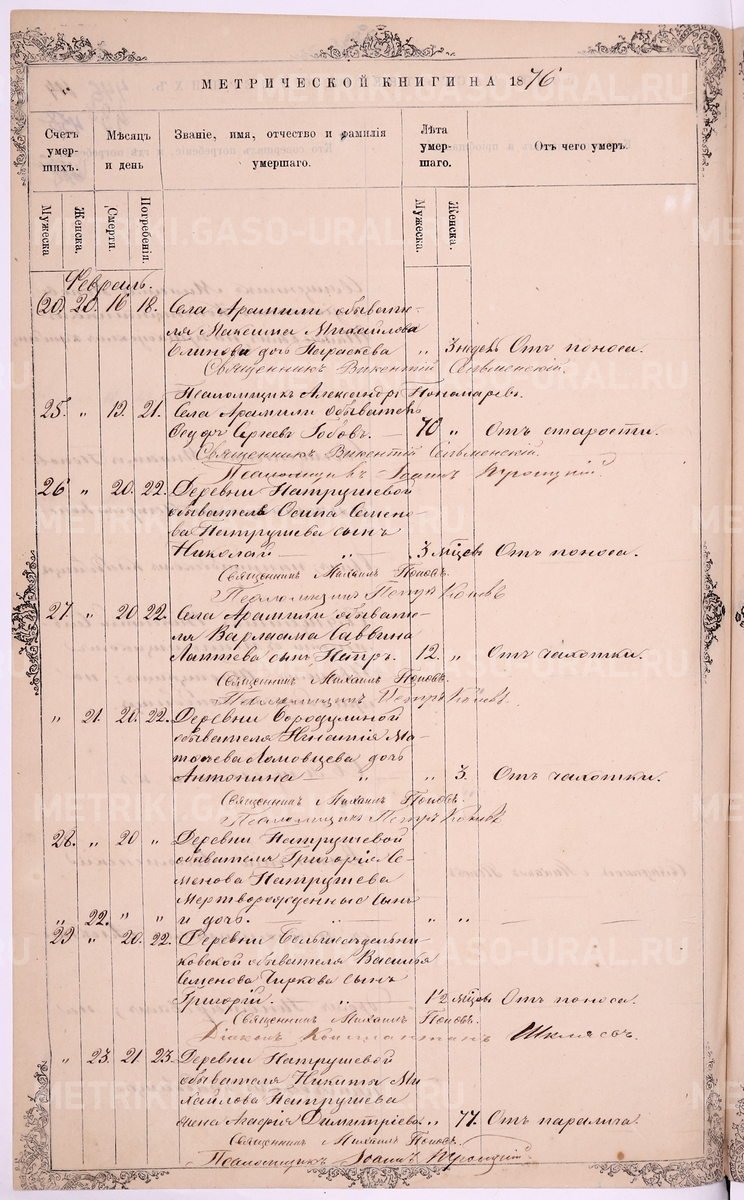 МЕТРИЧЕСКОЙ КНИГИ НА 1876
Счетъ умер- шихъ.
Мѣсяцъ и день
Званіе, имя, отчество и фамилія умершаго.
Лѣта умер- шаго.
Отъ чего умеръ.
Мужеска
Женска.
Смерти.
Погребенія.
Мужеска.
Женска.
Февраль.
(20) 20. 16 18. Села Арамили обывате-
ля Максима Михайлова
дочь Параскева „ 3 недѣл Отъ поноса.
Священникъ Викентій
Псаломщикъ Александръ Пономаревъ.
25. „ 19. 21. Села Арамили обыватель
Ѳедоръ Сергеевъ — 70 „ Отъ старости.
Священникъ Викентій
Псаломщикъ Іоаннъ
26 „ 20. 22. Деревни Патрушевой
обывателя Осипа Семено-
ва Патрушева сынъ
Николай — „ 3 мѣсцов Отъ поноса.
Священникъ Михаилъ Поповъ.
Псаломщикъ Петръ
27 „ 20 22. Села Арамили обывате-
ля Варлаама Саввина
Лаптева сынъ Петръ. 12. „ Отъ чахотки.
Священникъ Михаилъ Поповъ.
Псаломщикъ Петръ
„ 21. 20. 22. Деревни Бородулиной
обывателя Игнатія Ма-
дочь
Антонина — „ „ 3. Отъ чахотки.
Священникъ Михаилъ Поповъ.
Псаломщикъ Петръ
28. „ 20 „ Деревни Патрушевой
обывателя Григорія Се-
менова Патрушева
мертворожденные сынъ
„ 22. „ „ и дочь. „ „ „
29 „ 20. 22. Деревни
ковской обывателя Василья
Семенова Чиркова сынъ
Григорій „ 1½ мѣсцов Отъ поноса.
Священникъ Михаилъ Поповъ.
Діаконъ Константинъ
„ 23. 21. 23. Деревни Патрушевой
обывателя Никиты Ми-
хайлова Патрушева
жена Агафія Димитріева „ 77. Отъ паралича.
Священникъ Михаилъ Поповъ.
Псаломщикъ Іоаннъ
METRIKI.GASO-URAL.RU